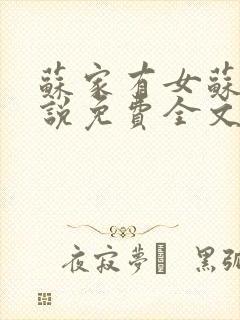 蘇家有女蘇
說免費全文
夜寂夢 黑弧